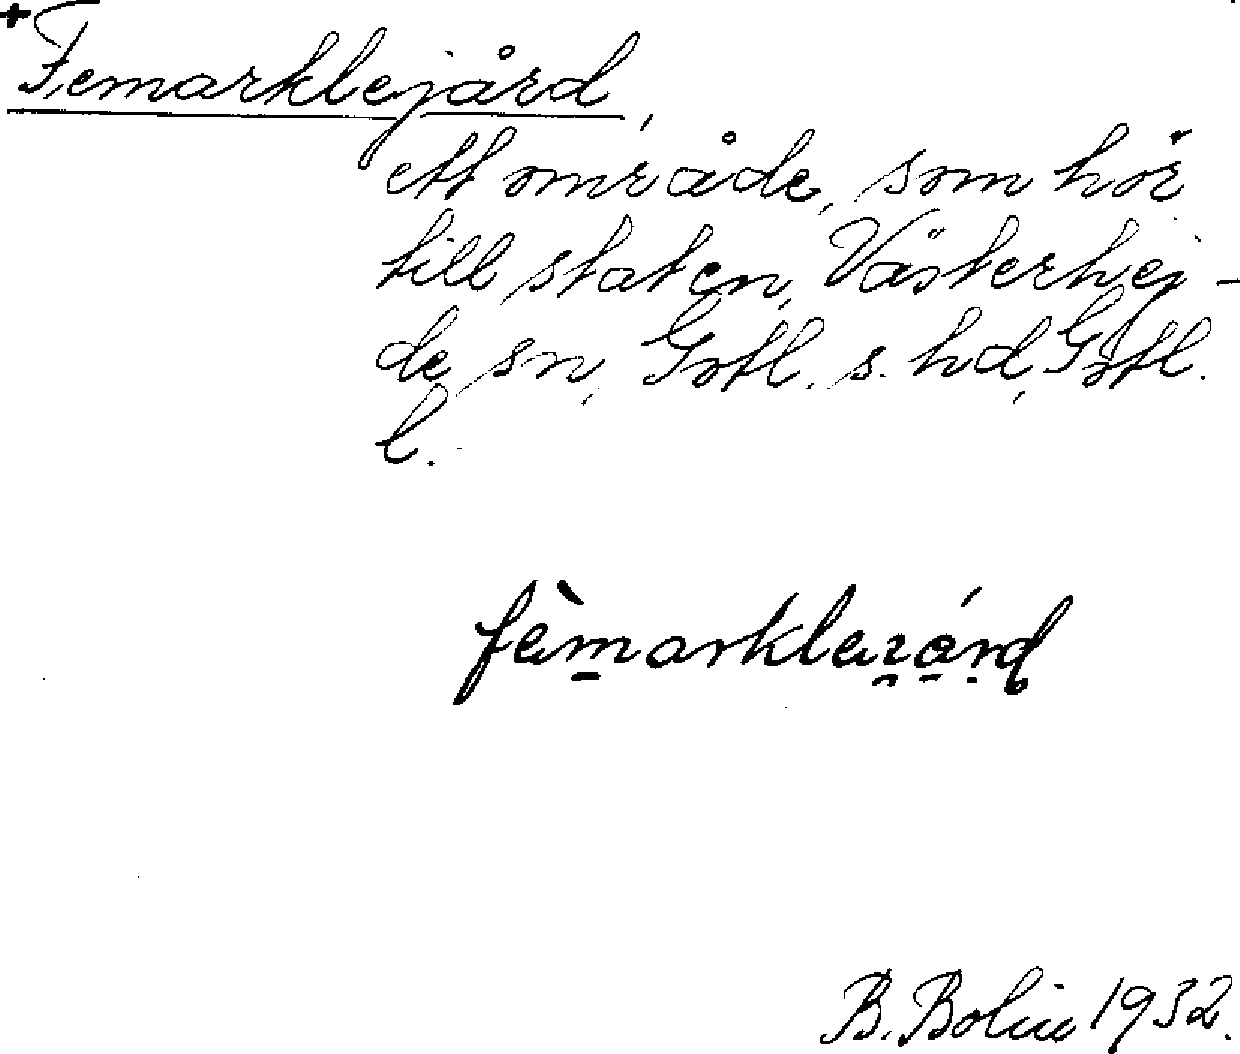 +Femarklejård,
ett område, som hör
till staten, Västerhej-
de sn, Gotl. s. hd, Gotl.
l.
B. Bolin 1932.